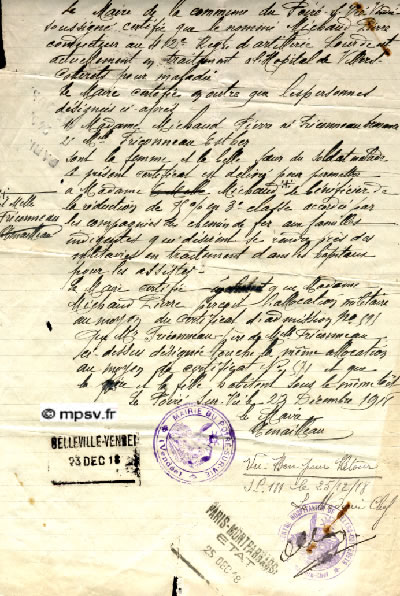 Le Maire de la commune du Poiré s/ Vie
soussigné certifie que le nommé Michaud Pierre
conducteur au 12e Régt d'artillerie Lourde et
actuellement en traitement à l'Hôpital de Villers
Coterets pour maladie
Le Maire certifie en outre que les personnes
désignées ci-après
1° Madame Michaud Pierre née Friconneau
2° Melle Friconneau Esther
sont la femme et la belle sœur du soldat
Le présent certificat est délivré pour permettre
à Madame Michaud de bénéficier de
et Melle
Friconneau
Renailleau
la réduction de en 3e classe accordé par
les compagnies de chemin de fer aux familles
indigentes qui désirent se rendre près des
militaires en traitement dans les hôpitaux
pour les assister
Le Maire certifie que Madame
Michaud Pierre perçoit l'allocation militaire
au moyen du certificat d'admission no 591
Que Mr Friconneau père de Melle Friconneau
ci-dessus désignée touche la même allocation
au moyen du certificat et que
le père et la fille habitent sous le même toit
Le Poiré sur Vie le 23 Décembre 1918
Le Maire
Renailleau
© mpsv.fr
BELLEVILLE-VENDEE
23 DEC 18
MAIRIE DU POIRÉ-SUR-VIE
(VENDÉE)
Vu Bon pour Retour
le 25/12/18
Le Médecin Chef
PARIS-MONTPARNASSE
ETAT
25 DEC 18